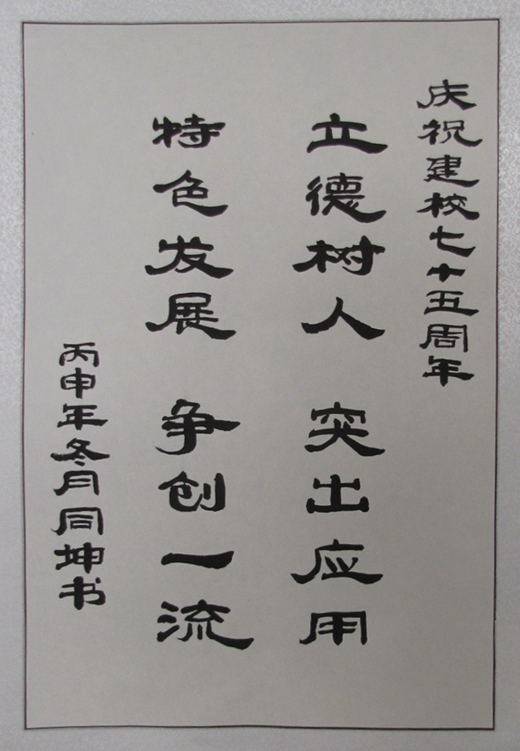 庆祝建校七十五周年
立德树人 突出应用
特色发展 争创一流
丙申年冬月同坤书